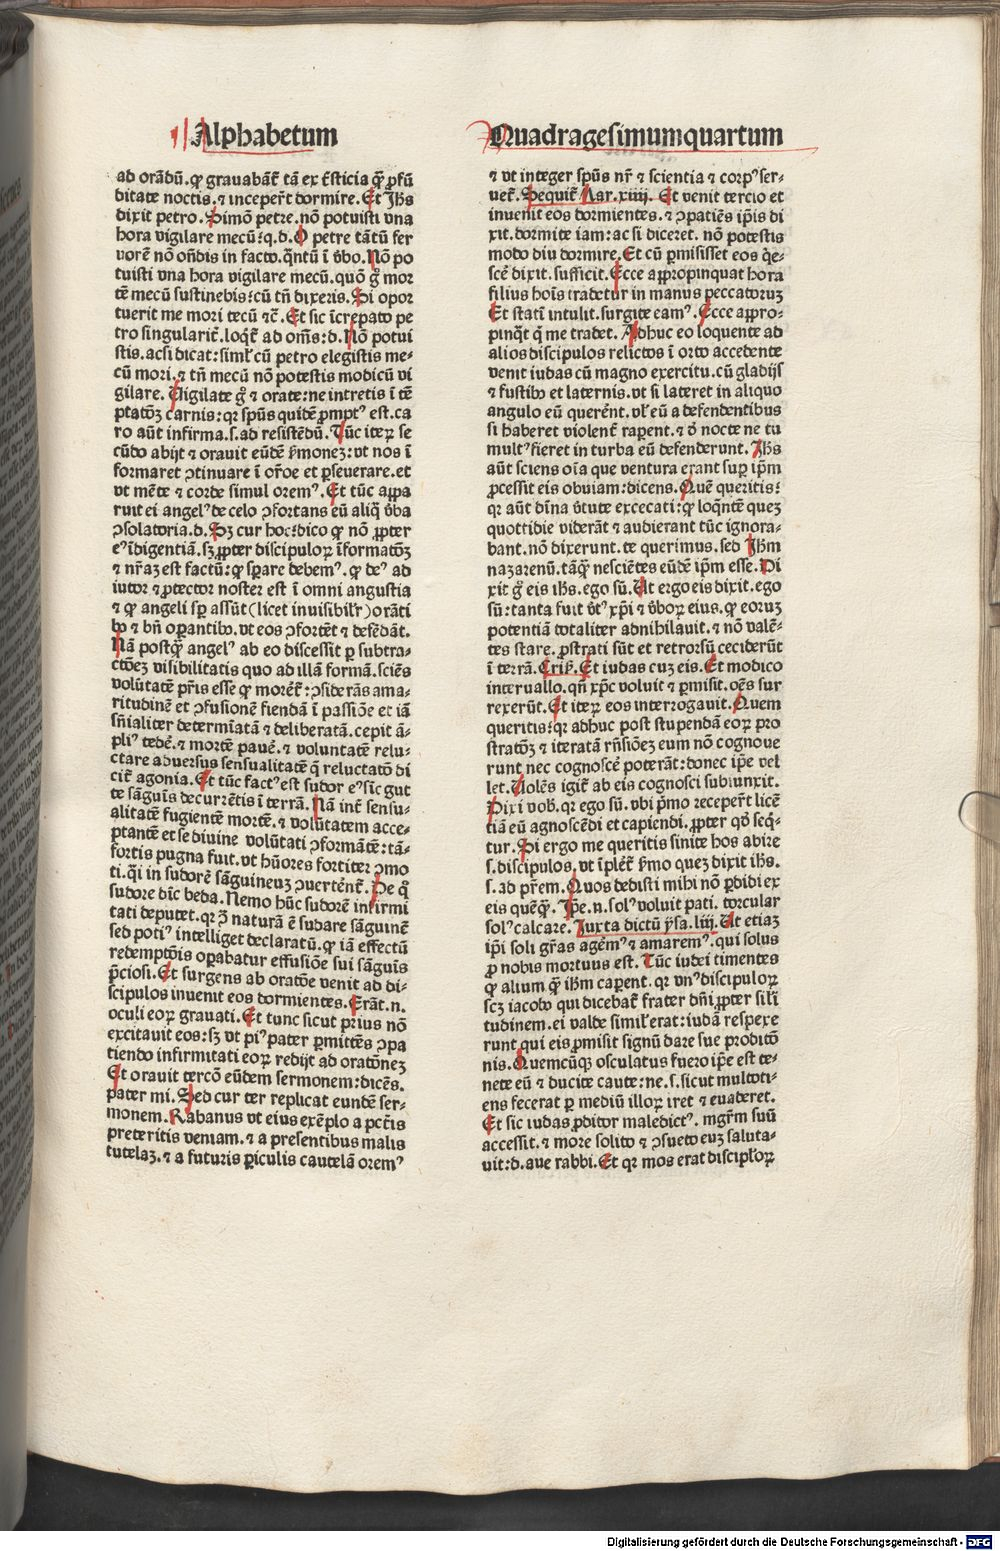 Alphabetum
ad orādū. ꝙ grauabāt̄ tā ex tr̄sticia ꝗ̄ ꝓfū
ditate noctis. ⁊ inceper̄t dormire. Et Jhs̄
dixit petro. Simō petre. nō potuisti vna
hora vigilare mecū: q.d. O petre tātū fer
uorē nō on̄dis in facto. qn̄tū ī v̄bo. Nō po
tuisti vna hora vigilare mecū. quō gͦ mor
tē mecū sustinebis: cū tn̄ dixeris. Si opor
tuerit me mori tecū ⁊c̄. Et sic īcrepato pe
tro singularit̄. loqt̄ ad om̄s: d. Nō potui
stis. acsi dicat: simĺ cū petro elegistis me⸗
cū mori. ⁊ tn̄ mecū nō potestis modicū vi
gilare. Uigilate gͦ ⁊ orate: ne intretis ī tē
ptatōꝫ carnis: qꝛ spūs quidē ꝓmptꝰ est. ca
ro aūt infirma. s. ad resistēdū. Tūc iteꝝ se
cūdo abijt ⁊ orauit eūdē ẜmoneꝫ: vt nos ī
formaret ꝯtinuare ī or̄oe et ꝑseuerare. et
vt mēte ⁊ corde simul oremꝰ. Et tūc appa
ruit ei angelꝰ de celo ꝯfortans eū aliq̄ v̄ba
ꝯsolatoria. d. Sꝫ cur hoc: dico ꝙ nō ꝓpter
eꝰ īdigentiā. sꝫ ꝓpter discipuloꝝ īformatōꝫ
⁊ nr̄aꝫ est factū: ꝙ sꝑare debemꝰ. ꝙ deꝰ ad
iutor ⁊ ꝓtector noster est ī omni angustia
⁊ ꝙ angeli sꝑ assūt (licet inuisibilr̄) orāti
bꝰ ⁊ bn̄ oꝑantibꝰ. vt eos ꝯfortēt ⁊ defēdāt.
Nā postꝗ̄ angelꝰ ab eo discessit ꝑ subtra⸗
ctōeꝫ visibilitatis quo ad illā formā. sciēs
volūtatē pr̄is esse ꝙ morēt̄: ꝯsiderās ama⸗
ritudinē et ꝯfusionē fiendā ī passiōe et iā
sn̄ialiter determīatā ⁊ deliberatā. cepit ā⸗
pliꝰ tedē. ⁊ mortē pauē. ⁊ voluntatē relu⸗
ctare aduersus sensualitatē q̄ reluctatō di
cit̄ agonia. Et tūc factꝰ est sudor eꝰ sic̄ gut
te sāguis decurrētis ī terrā. Nā int̄ sensu⸗
alitatē fugientē mortē. ⁊ volūtatem acce⸗
ptantē et se diuine volūtati ꝯformātē: tā⸗
fortis pugna fuit. vt hūores fortiter ꝯmo
ti. q̄i in sudorē sāguineuꝫ ꝯuertēnt̄. De q̄
sudore dic̄ beda. Nemo hūc sudorē infirmi
tati deputet. qꝛ ꝯ̄ naturā ē sudare sāguinē
sed potiꝰ intelliget declaratū. ꝙ iā effectū
redemptōis oꝑabatur effusiōe sui sāguis
p̄ciosi. Et surgens ab oratōe venit ad di⸗
scipulos inuenit eos dormientes. Erāt .n.
oculi eoꝝ grauati. Et tunc sicut prius nō
excitauit eos: sꝫ vt piꝰ pater ꝑmittēs ꝯpa
tiendo infirmitati eoꝝ redijt ad oratōneꝫ
Et orauit tercō eūdem sermonem: dicēs.
pater mi. Sed cur ter replicat eundē ser⸗
monem. Rabanus vt eius exēplo a pctīs
preteritis veniam. ⁊ a presentibus malis
tutelaꝫ. ⁊ a futuris ꝑiculis cautelā oremꝰ
Quadragesimumquartum
⁊ vt integer spūs nr̄ ⁊ scientia ⁊ corpꝰ ser⸗
uet̄. Sequit̄ Mar. xiiij. Et venit tercio et
inuenit eos dormientes. ⁊ ꝯpatiēs ip̄is di
xit. dormite iam: ac si diceret. nō potestis
modo diu dormire. Et cū ꝑmisisset eos q̄e⸗
scē dixit. sufficit. Ecce appropinquat hora
filius hoīs tradetur in manus peccatoruꝫ
Et statī intulit. surgite eamꝰ. Ecce appro⸗
pinq̄t q̄ me tradet. Adhuc eo loquente ad
alios discipulos relictos ī orto accedente
venit iudas cū magno exercitu. cū gladijs
⁊ fustibꝰ et laternis. vt si lateret in aliquo
angulo eū querēnt. vĺ eū a defendentibus
si haberet violent̄ raꝑent. ⁊ ꝺ̄ nocte ne tu
multꝰ fieret in turba eū defenderunt. Jhs̄
aūt sciens oīa que ventura erant suꝑ ip̄m
ꝓcessit eis obuiam: dicens. Quē queritis:
qꝛ aūt diīna v̄tute excecati: ꝙ loqn̄tē queꝫ
quottidie viderāt ⁊ audierant tūc ignora⸗
bant. nō dixerunt. te querimus. sed Jhm̄
nazarenū. tāq̄ꝫ nesciētes eūdē ip̄m esse. Di
xit gͦ eis ihs. ego sū. Ut ergo eis dixit. ego
sū: tanta fuit v̄tꝰ xp̄i ⁊ v̄boꝝ eius. ꝙ eoruꝫ
potentiā totaliter adnihilauit. ⁊ nō valē⸗
tes stare. ꝓstrati sūt et retrorsū ceciderūt
ī terrā. Crisꝰ. Et iudas cuꝫ eis. Et modico
interuallo. qn̄ xp̄c voluit ⁊ ꝑmisit. oēs sur
rexerūt. Et iteꝝ eos interrogauit. Quem
queritis: qꝛ adhuc post stupendā eoꝝ pro
stratōꝫ ⁊ iteratā rn̄siōeꝫ eum nō cognoue
runt nec cognoscē poterāt: donec ip̄e vel
let. Uolēs igit̄ ab eis cognosci subiunxit.
Dixi vob̄. qꝛ ego sū. vbi p̄mo receper̄t licē
tiā eū agnoscēdi et capiendi. ꝓpter qō seq̄⸗
tur. Si ergo me queritis sinite hos abire
s. discipulos. vt īplēt̄ ẜmo queꝫ dixit ihs.
s. ad pr̄em. Quos dedisti mihi nō ꝑdidi ex
eis quēꝗ̄. Ip̄e .n. solꝰ voluit pati. torcular
solꝰ calcare. Juxta dictū ysa. liij. Ut etiaꝫ
ip̄i soli gr̄as agemꝰ ⁊ amaremꝰ. qui solus
ꝓ nobis mortuus est. Tūc iudei timentes
ꝙ alium ꝗ̄ ihm̄ caꝑent. qꝛ vnꝰ discipuloꝝ
scꝫ iacobꝰ qui dicebat̄ frater dn̄i ꝓpter sili
tudinem. ei valde simil̄ erat: iudā respexe
runt qui eis ꝓmisit signū dare sue prodito
nis. Quemcūqꝫ osculatus fuero ip̄e est te⸗
nete eū ⁊ ducite caute: ne. s. sicut multoti⸗
ens fecerat ꝑ mediū illoꝝ iret ⁊ euaderet.
Et sic iudas ꝓditor maledictꝰ. mgr̄m suū
accessit. ⁊ more solito ⁊ ꝯsueto euꝫ saluta⸗
uit: d. aue rabbi. Et qꝛ mos erat discipĺoꝝ
Digitalisierung gefördert durch die Deutsche Forschungsgemeinschaft - DFG